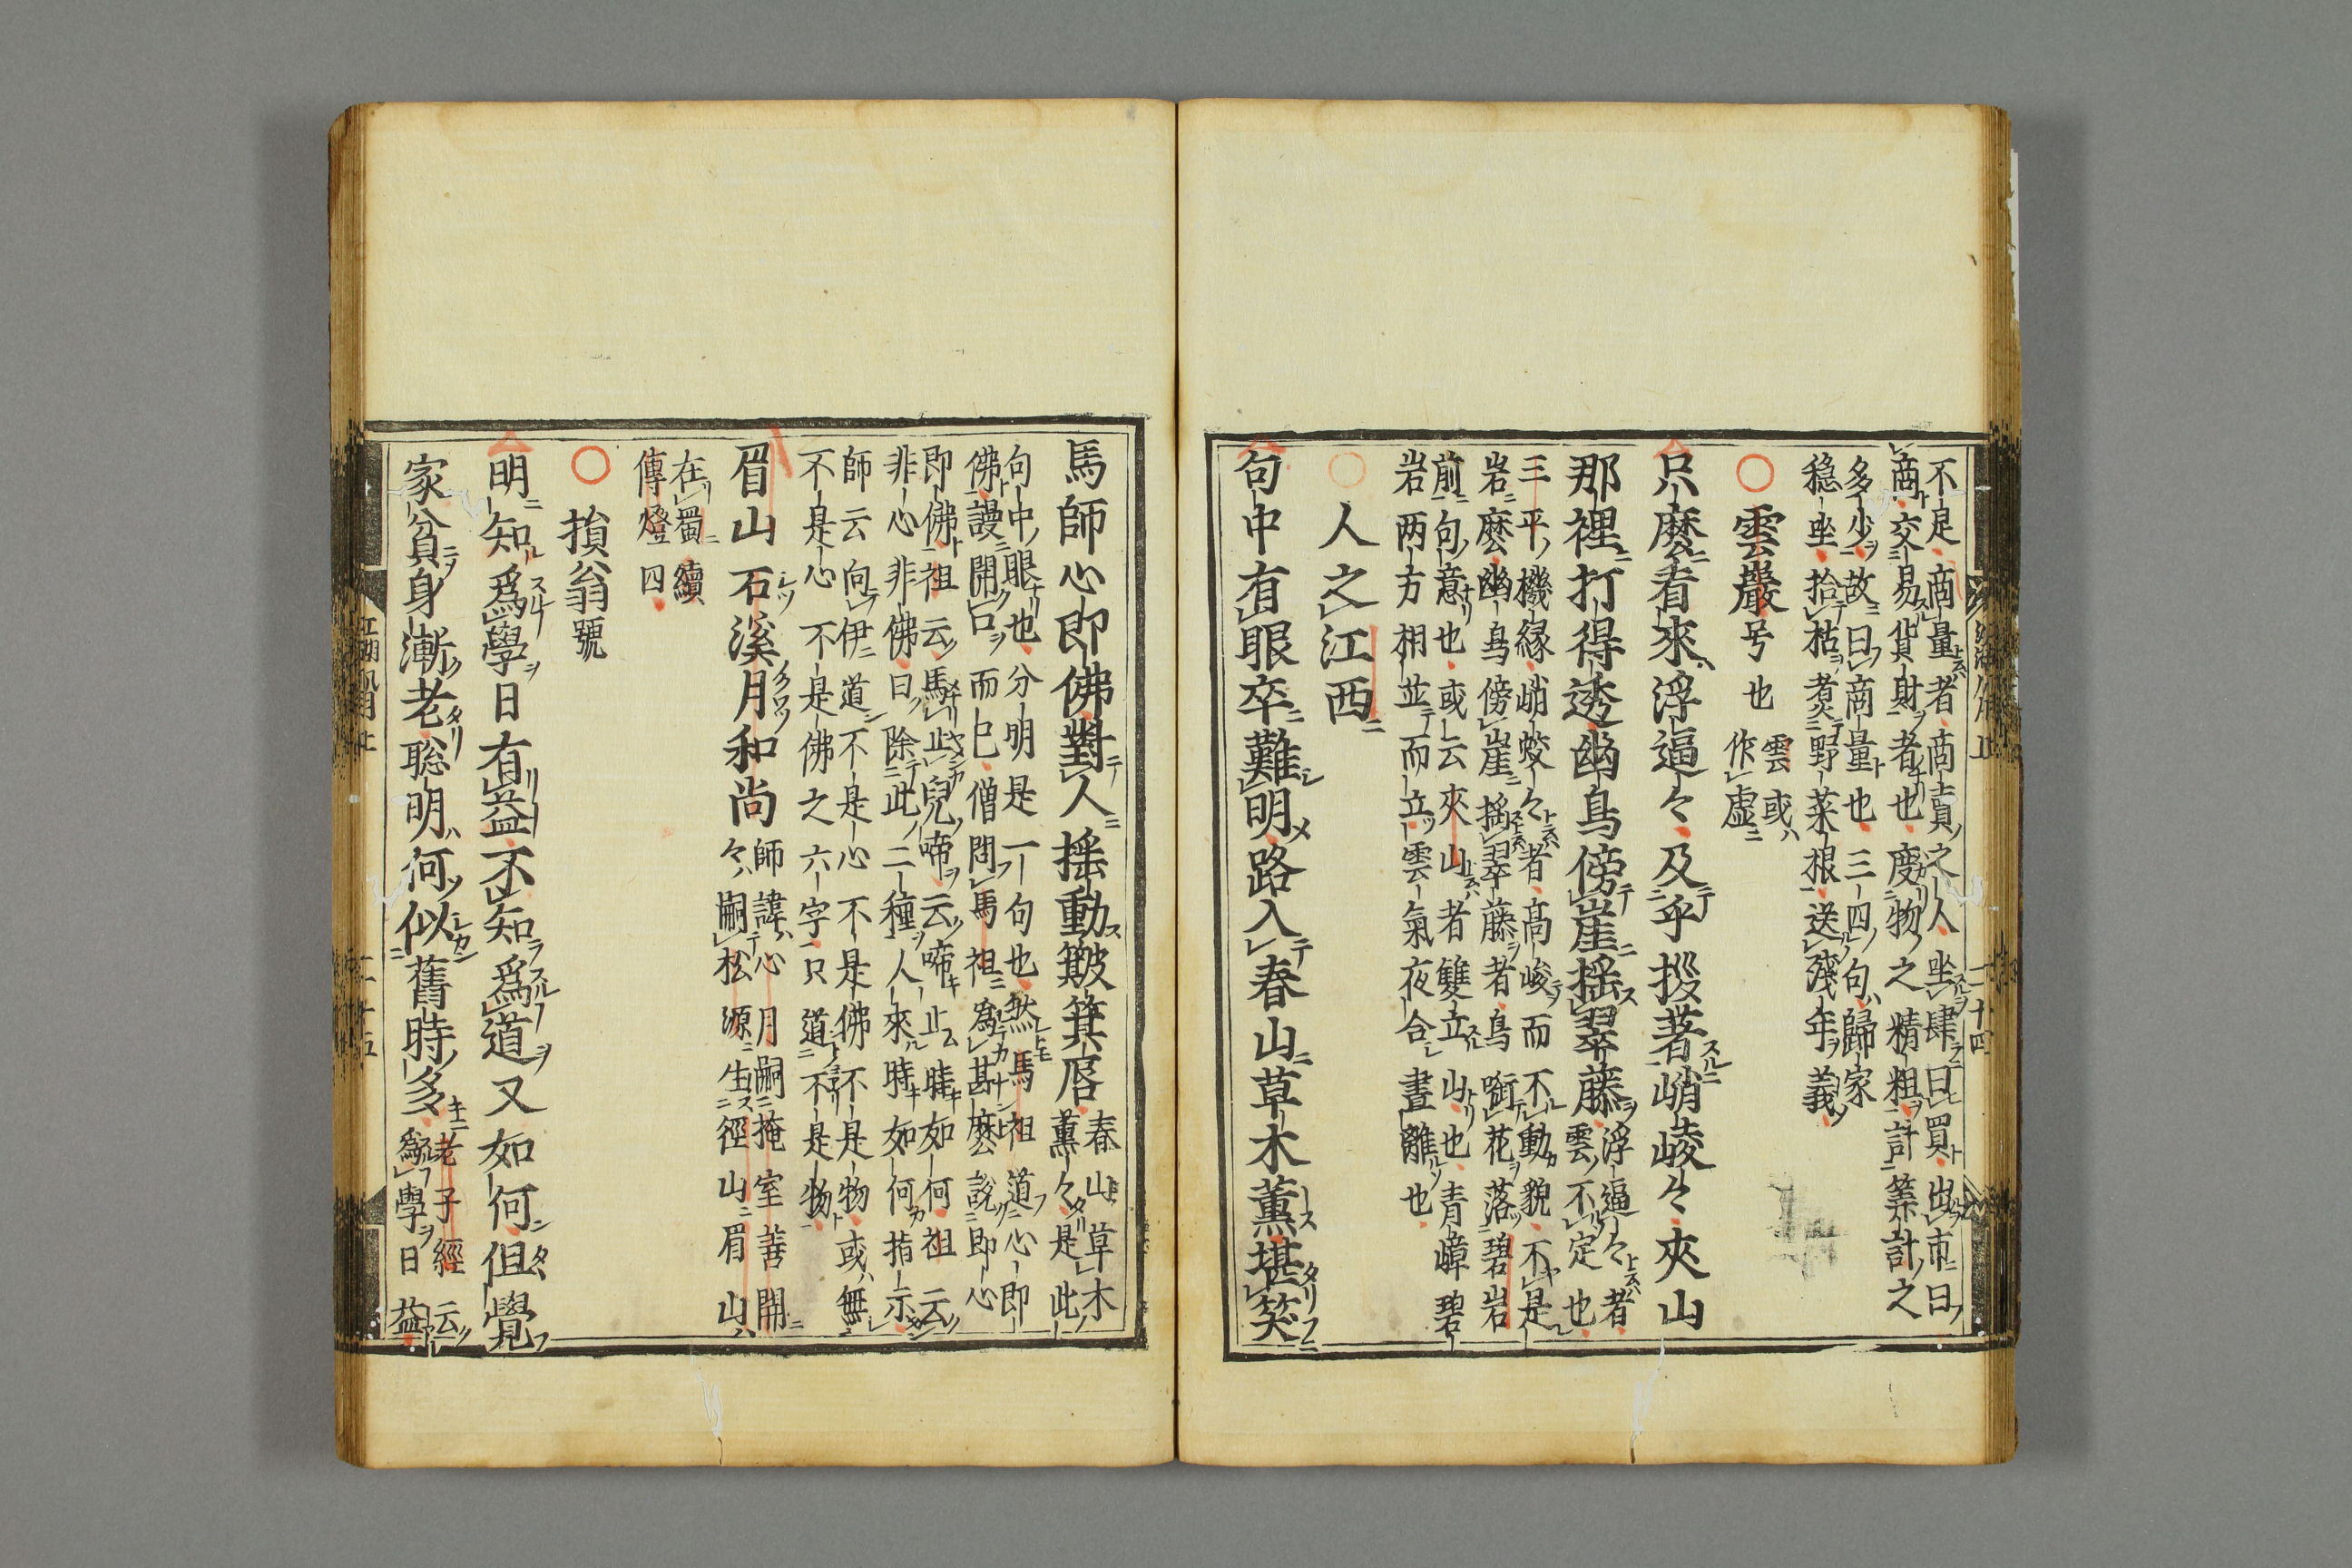 不足商量者商賣之人坐肆曰買出市曰
商交易貨財者也度物之精粗計筭計之
多少故曰商量也三四句歸家
穏坐拾枯煑野菜根送殘年義
雲巖号也
雲或
作虚
只麽看來浮逼々及乎拶著峭崚々夾山
那裡打得透幽鳥傍崖揺翠藤
浮逼々者
雲不定也
三平機縁峭蛟々者高峻而不動貌不是
岩麽幽鳥傍崖揺翠藤者鳥啣花落碧岩
前句意也或云夾山者雙立山也青嶂碧
岩两方相並而立雲氣夜合晝離也
人之江西
句中有眼卒難明路入春山草木薫堪笑
馬師心即佛對人揺動簸箕唇
春山草木
薫々是此
句中眼也分明是一句也然馬祖道心即
佛謾開口而已僧問馬祖爲甚麽説即心
即佛祖云馬止兒啼云啼止時如何祖云
非心非佛曰除此二種人來時如何指示
師云向伊道不是心不是佛不是物或無
不是心不是佛之六字只道不是物
眉山石溪月和尚
師諱心月嗣掩室善開
々嗣松源生徑山眉山
在蜀續
傳燈四
損翁號
明知爲學日有益不知爲道又如何但覺
家貧身漸老聡明何似舊時多
老子經云
爲學日益